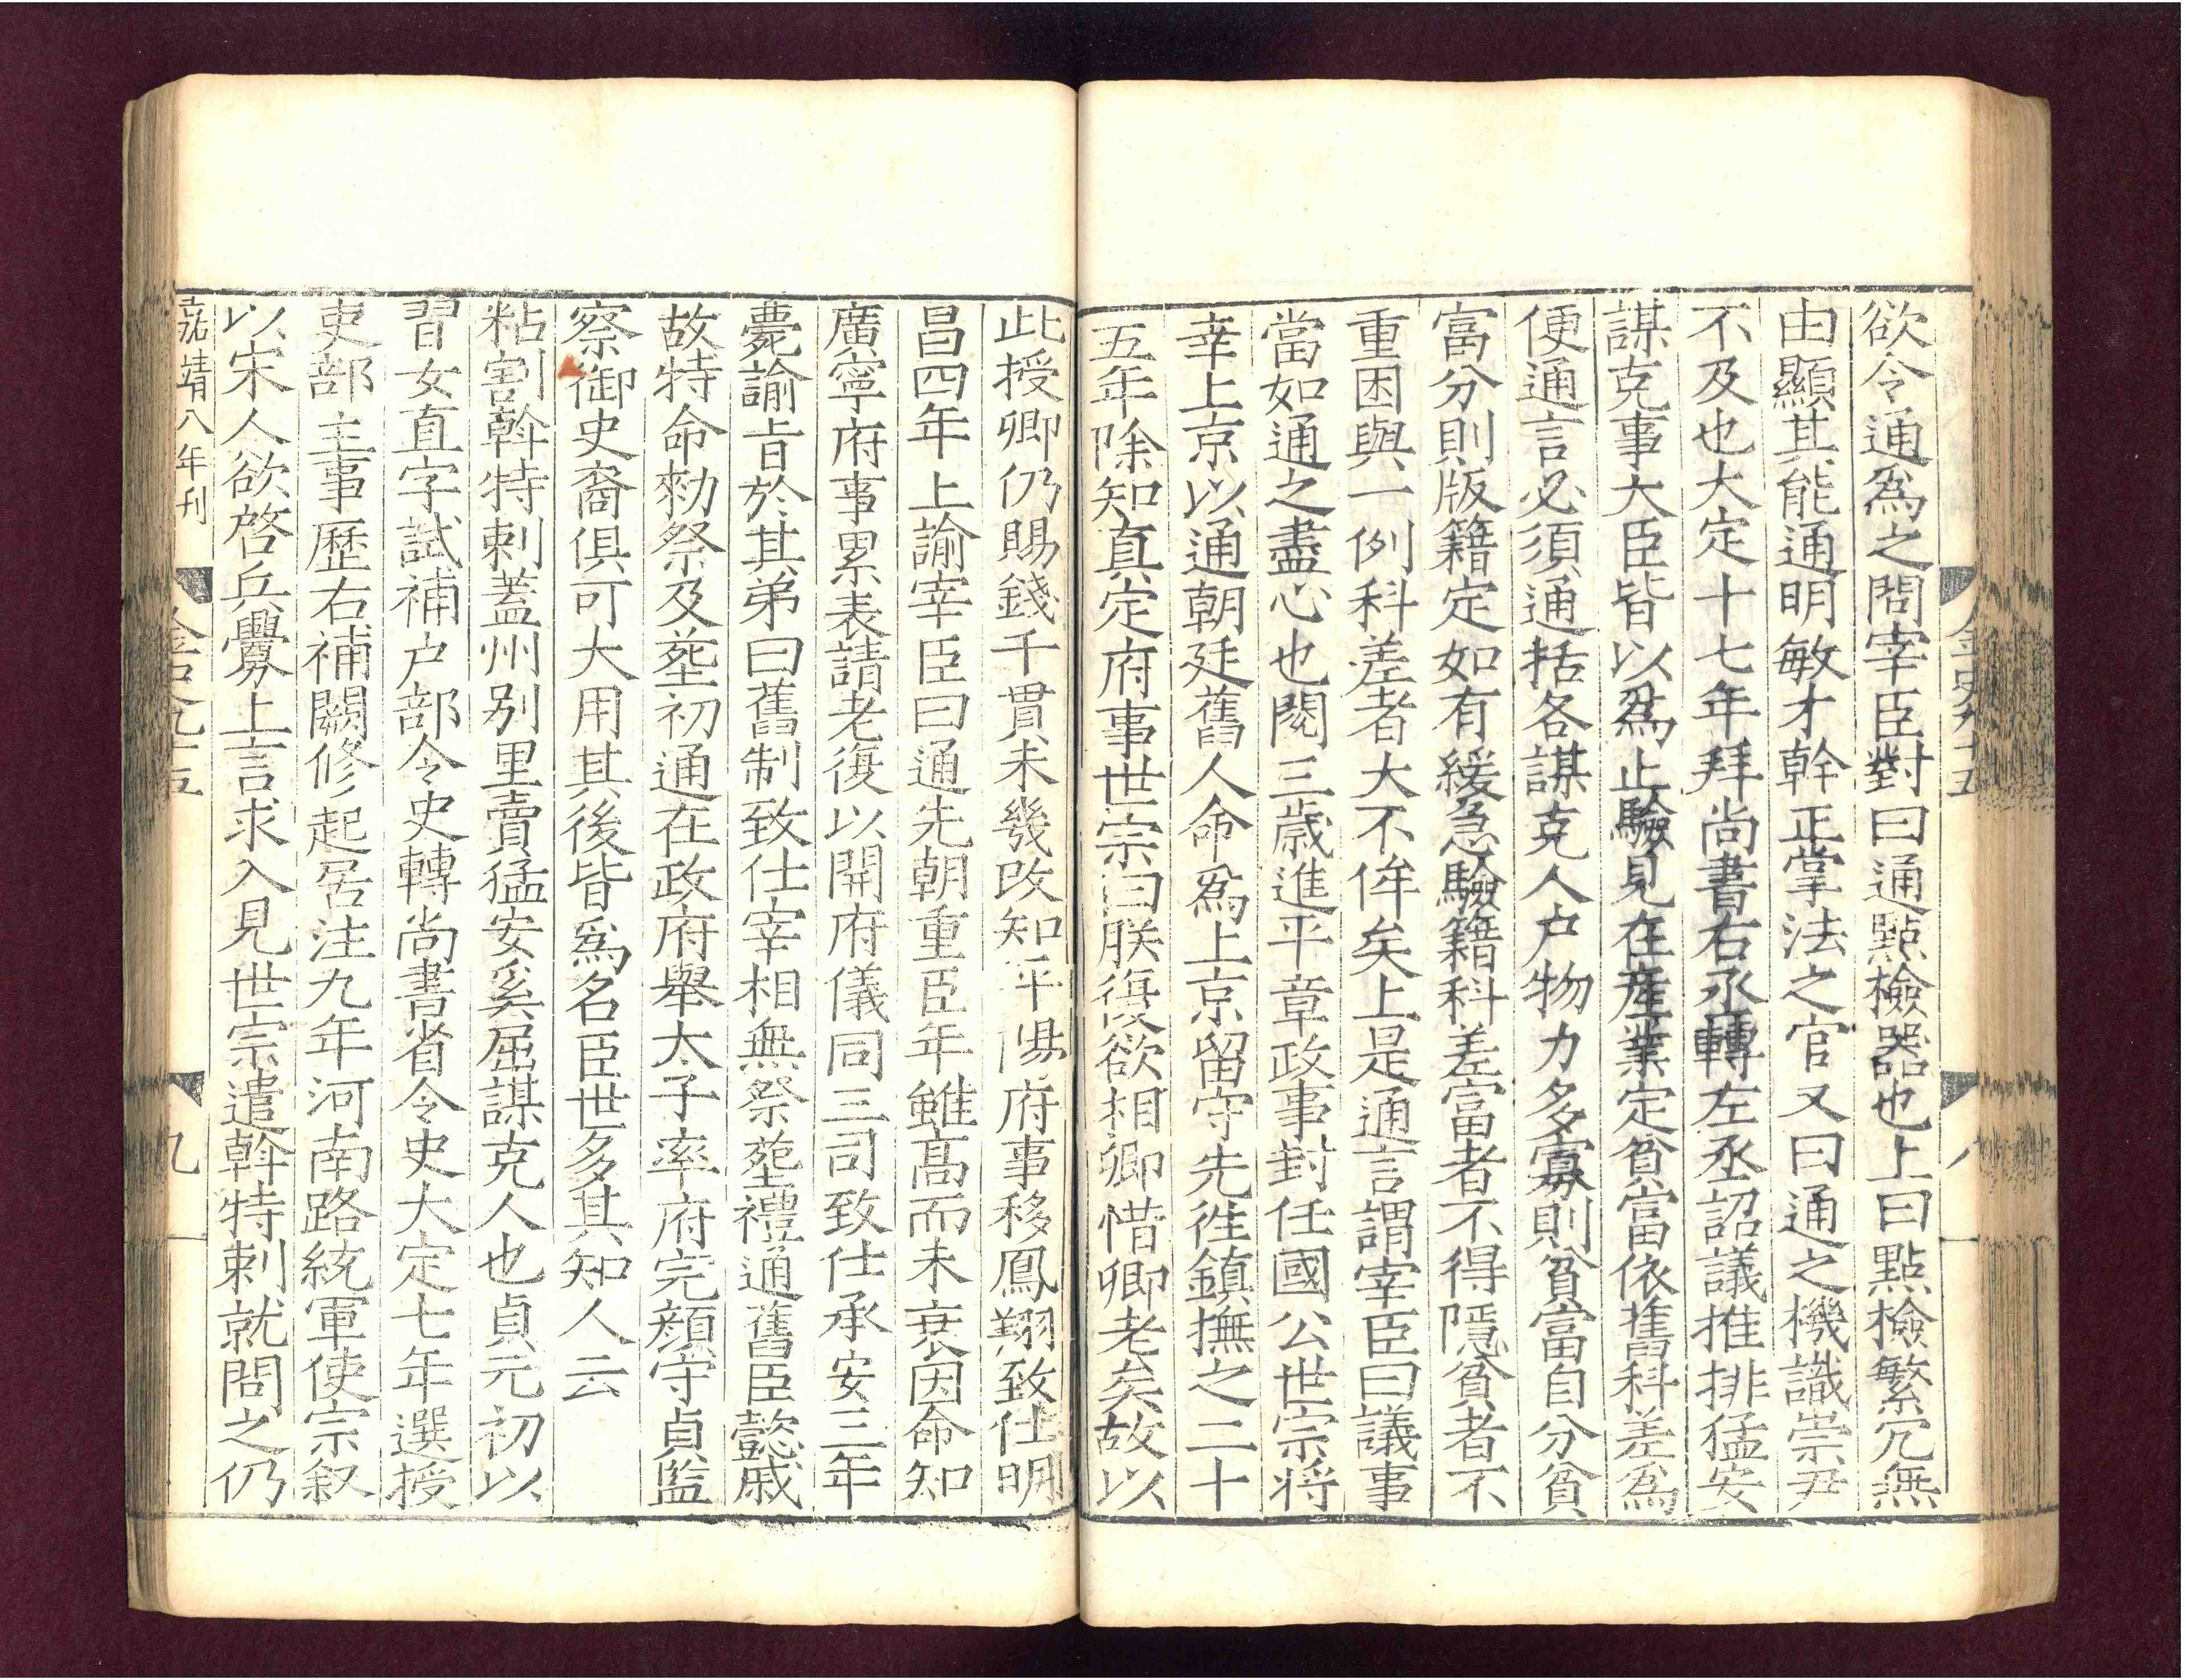 欲令通爲之問宰臣對曰通點檢器也上曰點檢繁冗無
由顯其能通明敏才幹正掌法之官又曰通之機識崇尹
不及也大定十七年拜尚書右丞轉左丞詔議推排猛安
謀克事大臣皆以爲止驗見在産業定貧富依舊科差爲
便通言必須通括各謀克人户物力多寡則貧富自分貧
富分則版籍定如有緩急驗籍科差富者不得隱貧者不
重困與一例科差者大不侔矣上是通言謂宰臣曰議事
當如通之盡心也閱三歲進平章政事封任國公世宗将
幸上京以通朝廷舊人命爲上京留守先徃鎮撫之二十
五年除知真定府事世宗曰朕復欲相卿惜卿老矣故以
此授卿仍賜錢千貫未幾改知平陽府事移鳳翔致仕明
昌四年上諭宰臣曰通先朝重臣年雖髙而未衰因命知
廣寧府事累表請老復以開府儀同三司致仕承安三年
薨諭旨於其弟曰舊制致仕宰相無祭塟禮通舊臣懿戚
故特命勑祭及塟初通在政府舉太子率府完顔守貞監
察御史裔俱可大用其後皆爲名臣世多其知人云
粘割斡特剌蓋州别里賣猛安奚屈謀克人也貞元初以
習女直字試補户部令史轉尚書省令史大定七年選授
吏部主事歷右補闕修起居注九年河南路統軍使宗叙
以宋人欲啓兵釁上言求入見世宗遣斡特剌就問之仍
嘉靖八年刊
九